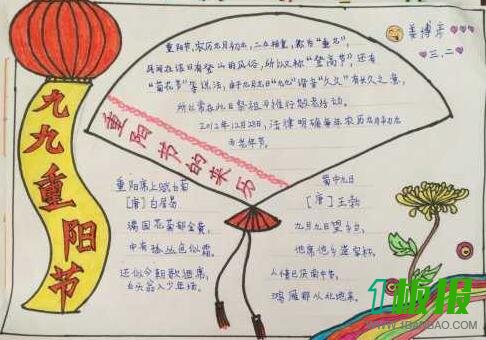 九九重阳节
重阳节的来历
重阳节,农历九月初九,二九相重,称为"重九",
民间在该日有登山的风俗,所以又称"登高节"还有
"菊花节"等说法,由于九月九日"九九"谐音"久久"有长久之意,
所以常在此日祭祖与推行敬老活动。
2012年12月28日,法律明确每年农历九月初九
为老年节。
姜博序
三.二
重阳席上赋白菊
[唐]白居易
满园花菊郁金黄,
中有孤丛色似霜。
还似今朝歌酒席,
白头翁入少年场。
蜀中九日
[唐]王勃
九月九日望乡台,
他席他乡送客杯。
人情已厌南中苦,
鸿雁那从北地来。
1板报
WWW.1BANBAO.COM